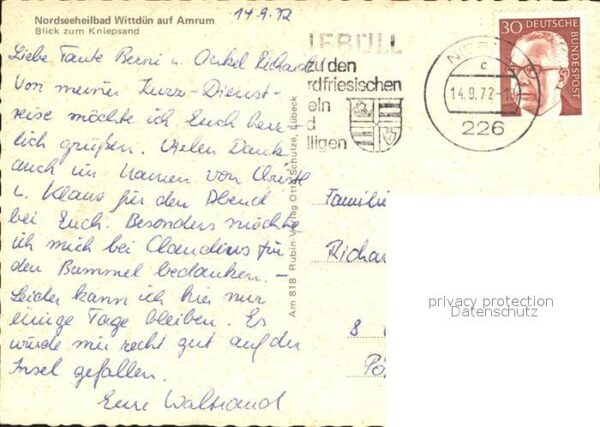 Nordseeheilbad Wittdün auf Amrum
Blick zum Kniepsand
14.9.72
Liebe Tante Berni u. Onkel Richard!
Von meiner Kurz-Dienst-
reise möchte ich Euch herz-
lich grüßen. Vielen Dank
auch im Namen von Christl
u. Klaus für den Abend
bei Euch. Besonders möchte
ich mich bei Claudius für
den Bummel bedanken. -
Leider kann ich hier nur
einige Tage bleiben. Es
würde mir recht gut auf der
Insel gefallen.
Eure Waltraud
Am 818 Rubin-Verlag Otto Schulze, Lübeck
IEBÜLL
zu den
rdfriesischen
eln
d
lligen
c
14.9.72-1
226
30 DEUTSCHE
BUNDESPOST
Familie
Richar
8
privacy protection
Datenschutz